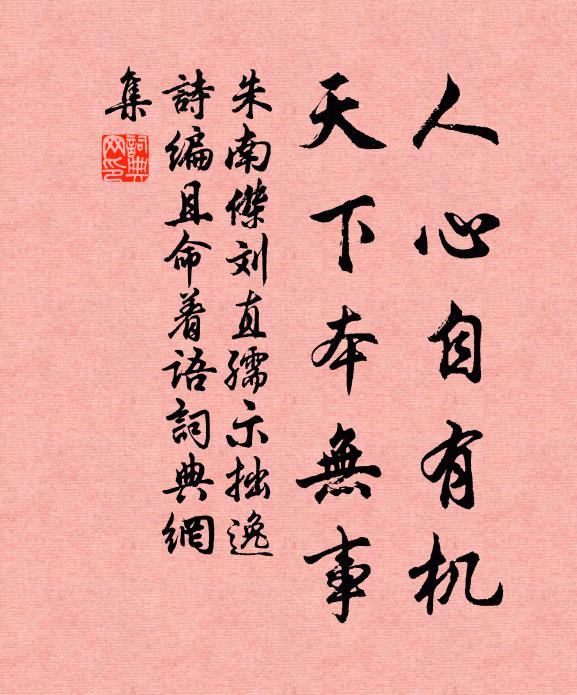 人心自有机
天下本無事
朱南傑刘直孺示拙逸
詩編且命着语詞典網
集
詞典网印